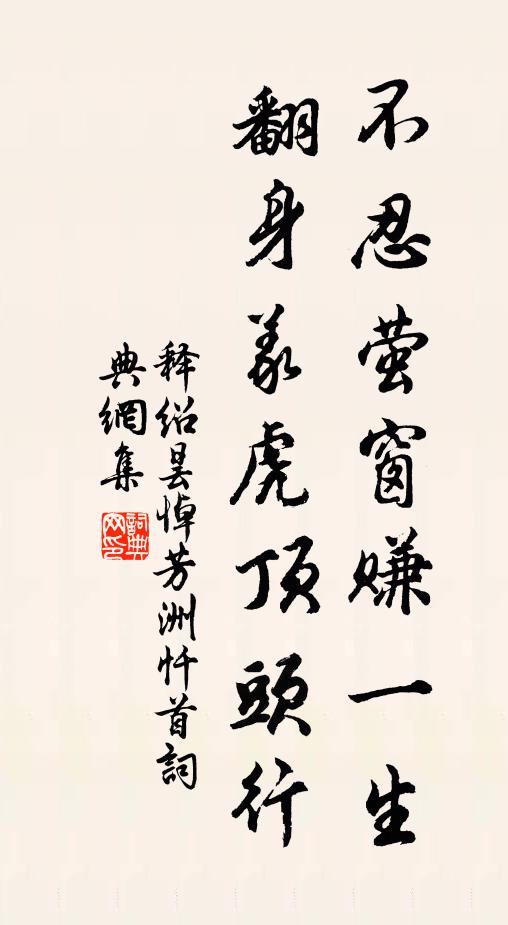 不忍萤窗赚一生
翻身義虎顶頭行
释绍昙悼芳洲忏首詞
典網集
詞典
网印